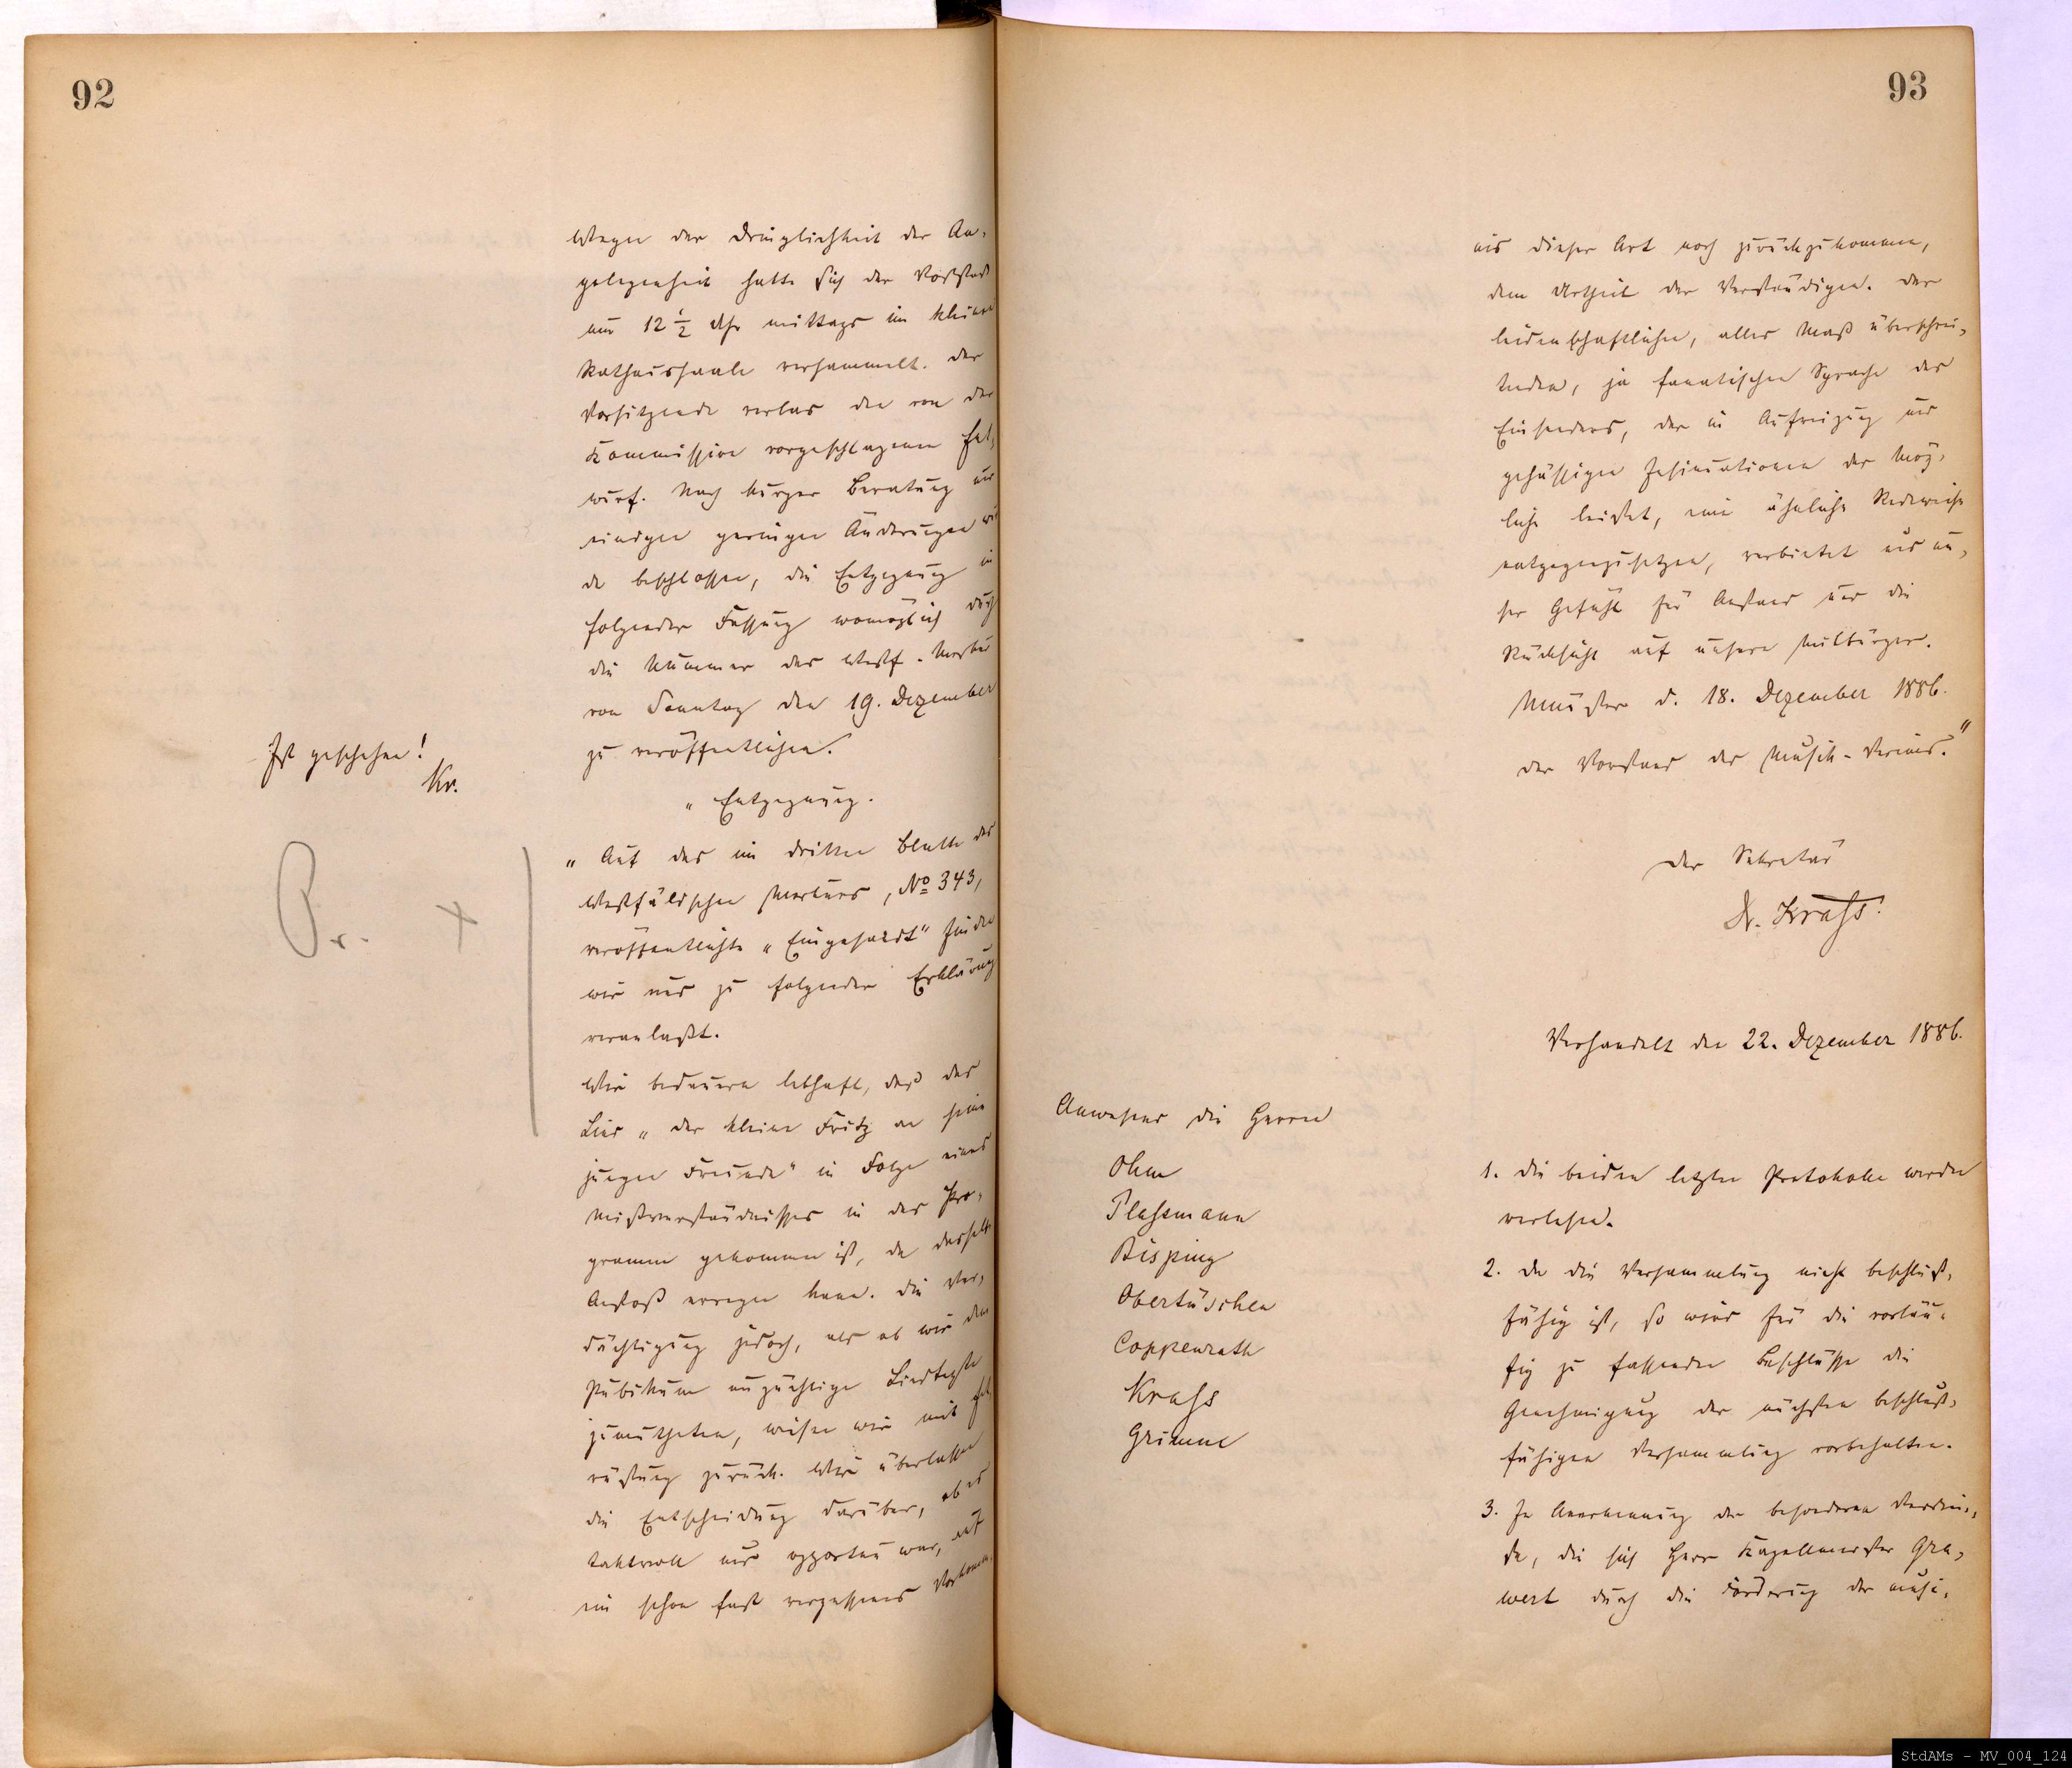 92
Wegen der Dringlichkeit der An-
gelegenheit hatte sich der Vorstand
um 12 1/2 Uhr mittags im kleinen
Rathaussaale versammelt. Der
Vorsitzende verlas den von der
Kommission vorgeschlagenen Ent-
wurf. Nach kurzer Beratung und
einigen geringen Änderungen wur-
de beschlossen, die Entgegnung in
folgender Fassung womöglich durch
die Nummer des Westf. Merkur
von Sonntag den 19. Dezember
zu veröffentlichen.
Ist geschehen!
Kr.
„Entgegnung.
„Auf das im dritten Blatte des
Westfälischen Merkurs, No 343,
veröffentlichte „Eingesandt" finden
wir uns zu folgender Erklärung
veranlaßt.
Pr. +
Wir bedauern lebhaft, daß das
Lied „der kleine Fritz an seine
jungen Freunde" in Folge eines
Mißverständnisses in das Pro-
gramm gekommen ist, da dasselbe
Anstoß erregen kann. Die Ver-
dächtigung jedoch, als ob wir dem
Publikum unzüchtige Liedtexte
zumutheten, weisen wir mit Ent-
rüstung zurück. Wir überlassen
die Entscheidung darüber, ob es
taktvoll und opportun war, auf
ein schon fast vergessenes Vorkomm-
93
nis dieser Art noch zurückzukommen,
dem Urtheil der Verständigen. Der
leidenschaftlichen, alles Maß überschrei-
tenden, ja fanatischen Sprache des
Einsenders, der in Aufreizung und
gehässigen Insinuationen das Mög-
liche leistet, eine ähnliche Redeweise
entgegenzusetzen, verbietet uns un-
ser Gefühl für Anstand und die
Rücksicht auf unsere Mitbürger.
Münster d. 18. Dezember 1886.
Der Vorstand des Musik-Vereins."
Der Sekretär
Dr. Krass.
Verhandelt den 22. Dezember 1886.
Anwesend die Herren
Ohm
Plassmann
Bisping
Obertüschen
Coppenrath
Krass
Grimme
1. Die beiden letzten Protokolle werden
verlesen.
2. Da die Versammlung nicht beschluß-
fähig ist, so wird für die vorläu-
fig zu fassenden Beschlüsse die
Genehmigung der nächsten beschluß-
fähigen Versammlung vorbehalten.
3. In Anerkennung der besonderen Verdien-
ste, die sich Herr Kapellmeister Gra-
wert durch die Förderung der musi-
StdAMs - MV_004_124